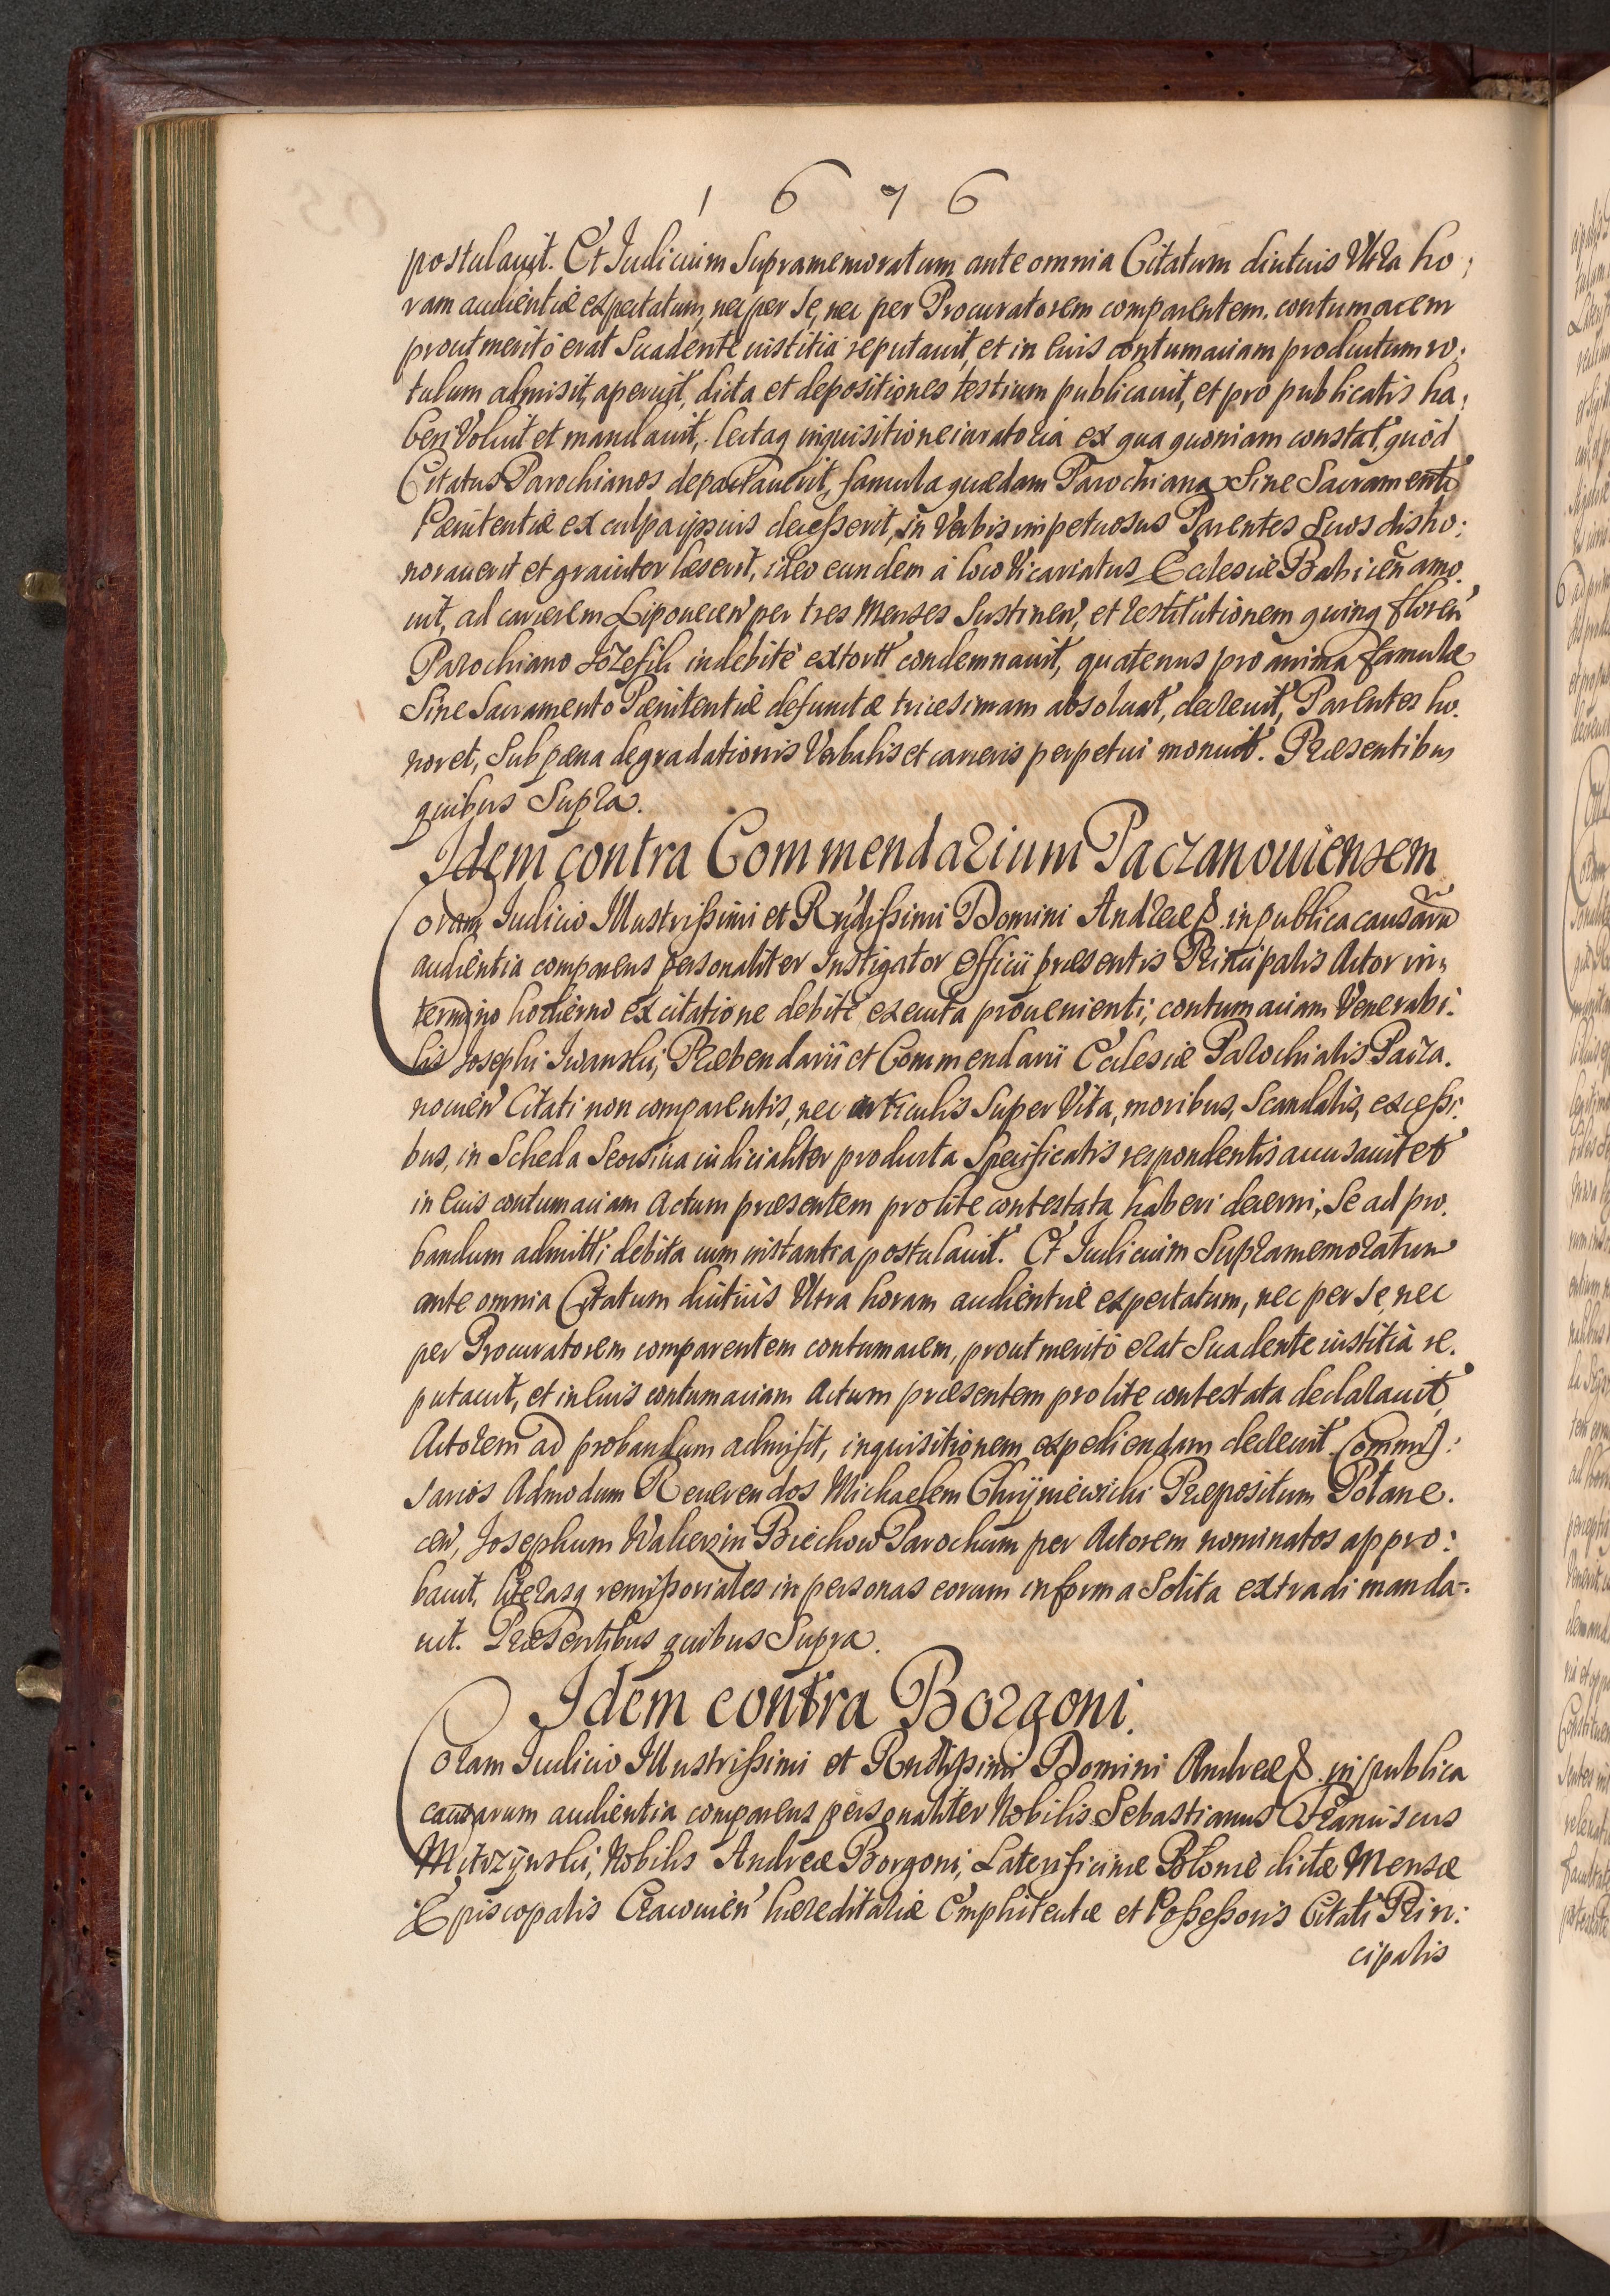 1676
postulavit. Et Iudicium Supramemoratum ante omnia Citatum diutius Ultra ho:
ram audientiæ expectatum, nec per se, nec per Procuratorem comparentem, contumacem
prout meritò erat Suadente iustitia reputavit, et in eius contumaciam productum ro:
tulum admisit, aperuit, dicta et depositiones testium publicavit, et pro publicatis ha:
beri Voluit et mandavit, lectaq inquisitione iuratoria ex qua quoniam constat, quòd
Citatus Parochianos depactaverit, famula quædam Parochiana Sine Sacramento
Pœnitentiæ ex culpa ipsius decesserit, in Verbis impetuosus Parentes Suos disho:
noraverit et graviter læserit, ideo eundem à loco Vicariatus Ecclesiæ Babicen amo.
vit, ad carcerem Lipovecen per tres Menses Sustinen, et restitutionem quinq floren
Parochiano Jozefik indebitè extort condemnavit, quatenus pro anima famulæ
Sine Sacramento Pœnitentiæ defunctæ tricesimam absolvat, decrevit, Parentes ho.
noret, Sub pœna degradationis Verbalis et carceris perpetui monuit. Præsentibus
quibus Supra.
Idem contra Commendarium Paczanoviensem
Coram Iudicio Illustrissimi et Rndissimi Domini Andreæ ß. in publica causaru
audientia comparens personaliter Instigator Officii præsentis Principalis Actor in
termino hodierno ex citatione debitè executa provenienti, contumaciam Venerabi:
lis Josephi Iwanski, Præbendarii et Commendarii Ecclesiæ Parochialis Pacza.
novien Citati non comparentis, nec articulis Super Vita, moribus, Scandalis, excessi:
bus, in Scheda Seorsiva iudicialiter producta Specificatis respondentis accusavit et
in eius contumaciam Actum præsentem pro lite contestata haberi decerni, Se ad pro.
bandum admitti debita cum instantia postulavit. Et Iudicium Supramemoratum
ante omnia Citatum diutiùs Ultra horam audientiæ expectatum, nec per Se, nec
per Procuratorem comparentem contumacem, prout meritò erat Suadente iustitià re.
putavit, et in eius contumaciam Actum præsentem pro lite contestata declaravit,
Actorem ad probandum admisit, inquisitionem expediendam decrevit Commis:
sarios Admodum Reverendos Michaelem Chryniewicki Præpositum Polane.
cen, Josephum Walicz in Biechow Parochum per Actorem nominatos appro:
bavit, literasq remissoriales in personas eorum in forma Solita extradi manda-:
vit. Præsentibus quibus Supra.
Idem contra Borgoni.
Coram Iudicio Illustrissimi et Rndissimi Domini Andreæ ß. in publica
causarum audientia comparens personaliter Nobilis Sebastianus Franciscus
Nobilis Andreæ Borgoni, Laterificinæ dictæ Mensæ
Episcopalis Cracovien hæreditariæ Emphiteutæ et Possessoris Citati Prin:
cipalis